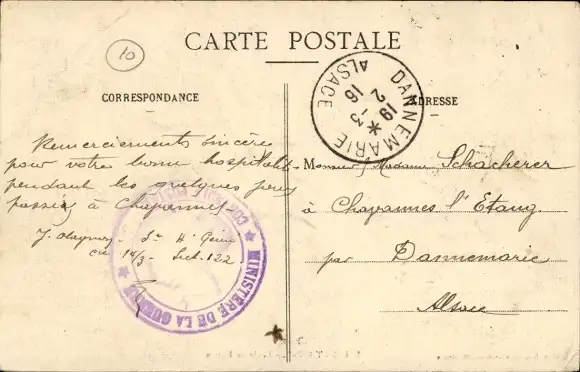 10
CARTE POSTALE
DANNEMARIE
ALSACE
19 * 3
2
16
CORRESPONDANCE
ADRESSE
Remerciements sincères
pour votre bonne hospitalité
pendant les quelques jours
passés à Chavannes
Cie 14/3 - Sect. 122
MINISTÈRE DE LA GUERRE
Monsieur Madame Schacherer
à Chavannes l'Etang
par Dannemarie
Alsace